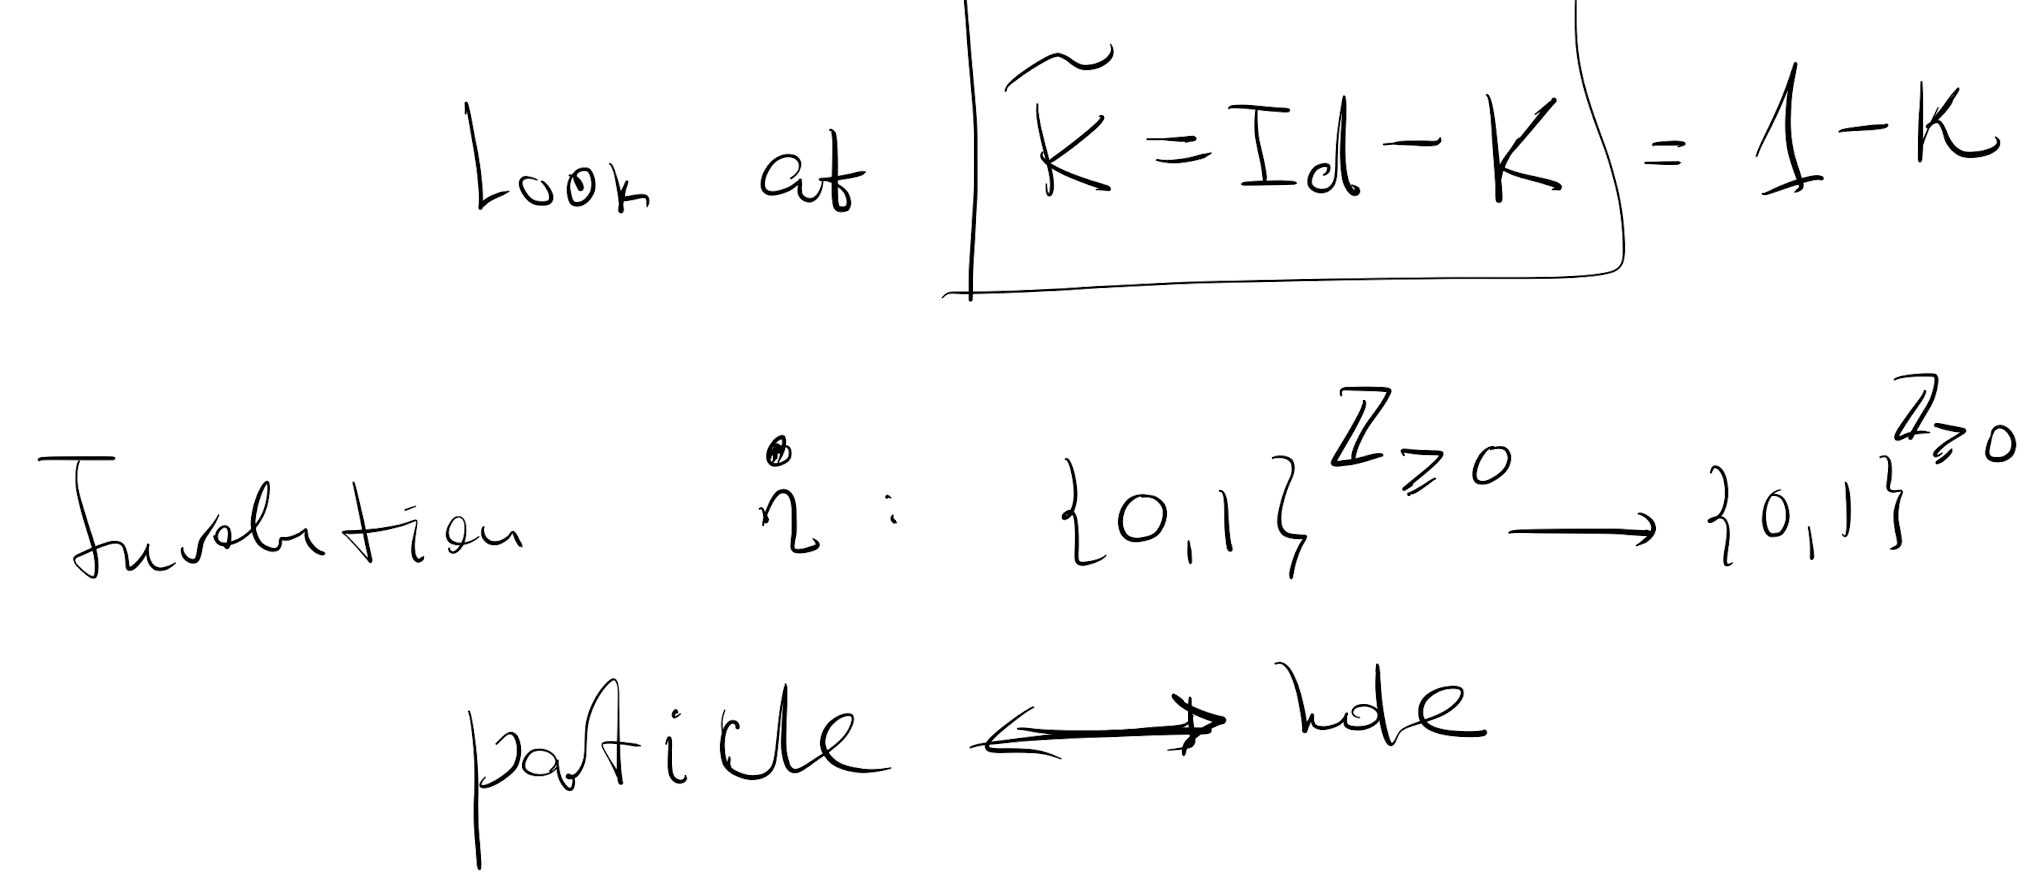 Look at K̃ = Id - K = 1 - K
Involution i : {0,1}^ℤ≥0 → {0,1}^ℤ≥0
particle ↔ hole